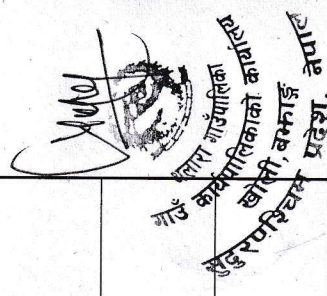 थलारा गाउँपालिका
गाउँ कार्यपालिकाको कार्यालय
खोली, बझाङ्ग
सुदुरपश्चिम प्रदेश, नेपाल